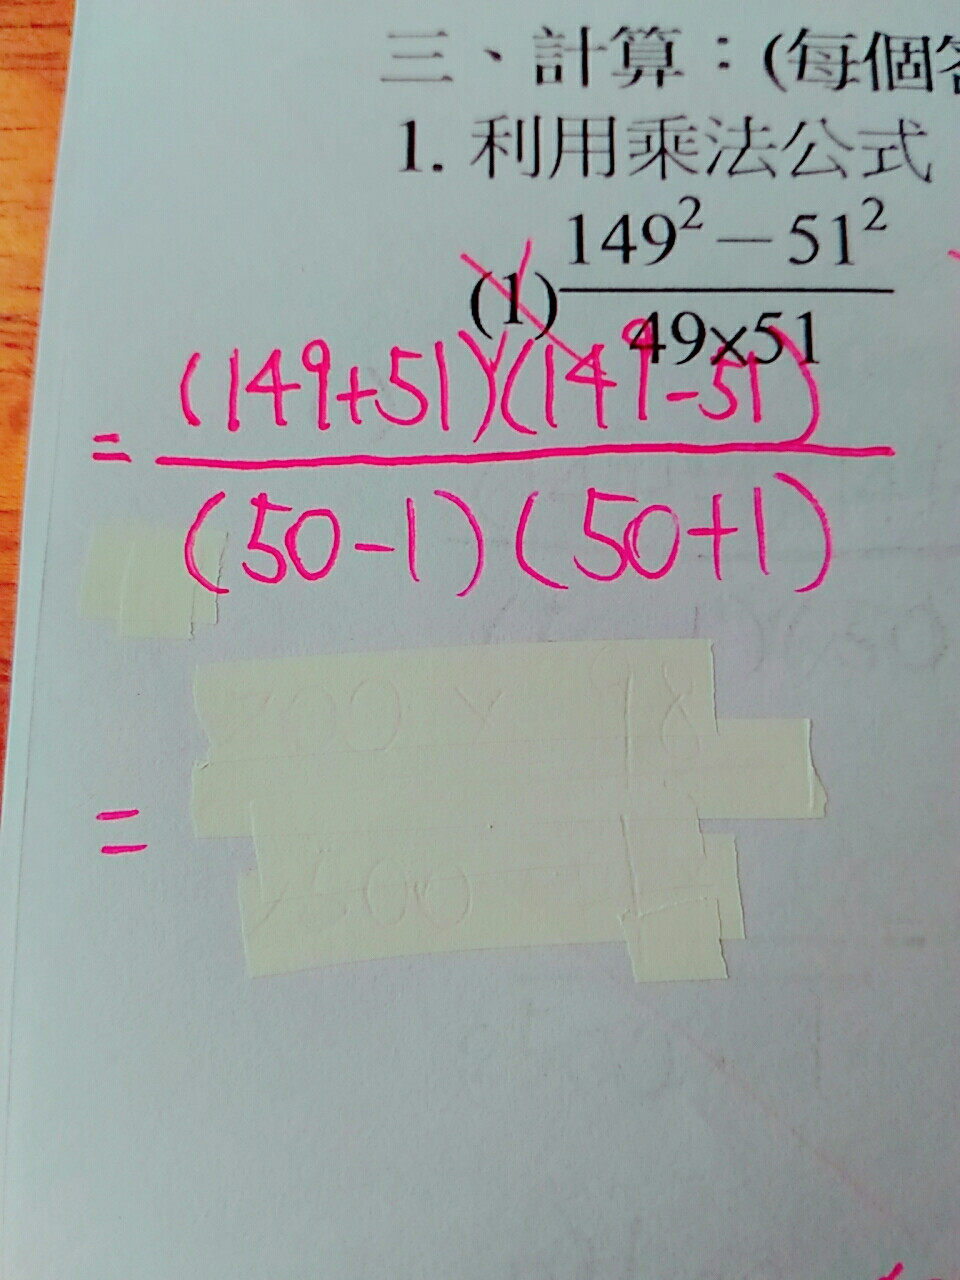 三、計算：(每個
1. 利用乘法公式
(1) \frac{149² − 51²}{49×51}
= \frac{(149+51)(149-51)}{(50-1)(50+1)}
=